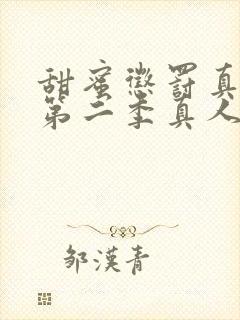 甜蜜懲罰真
第二季真人
邹漢青